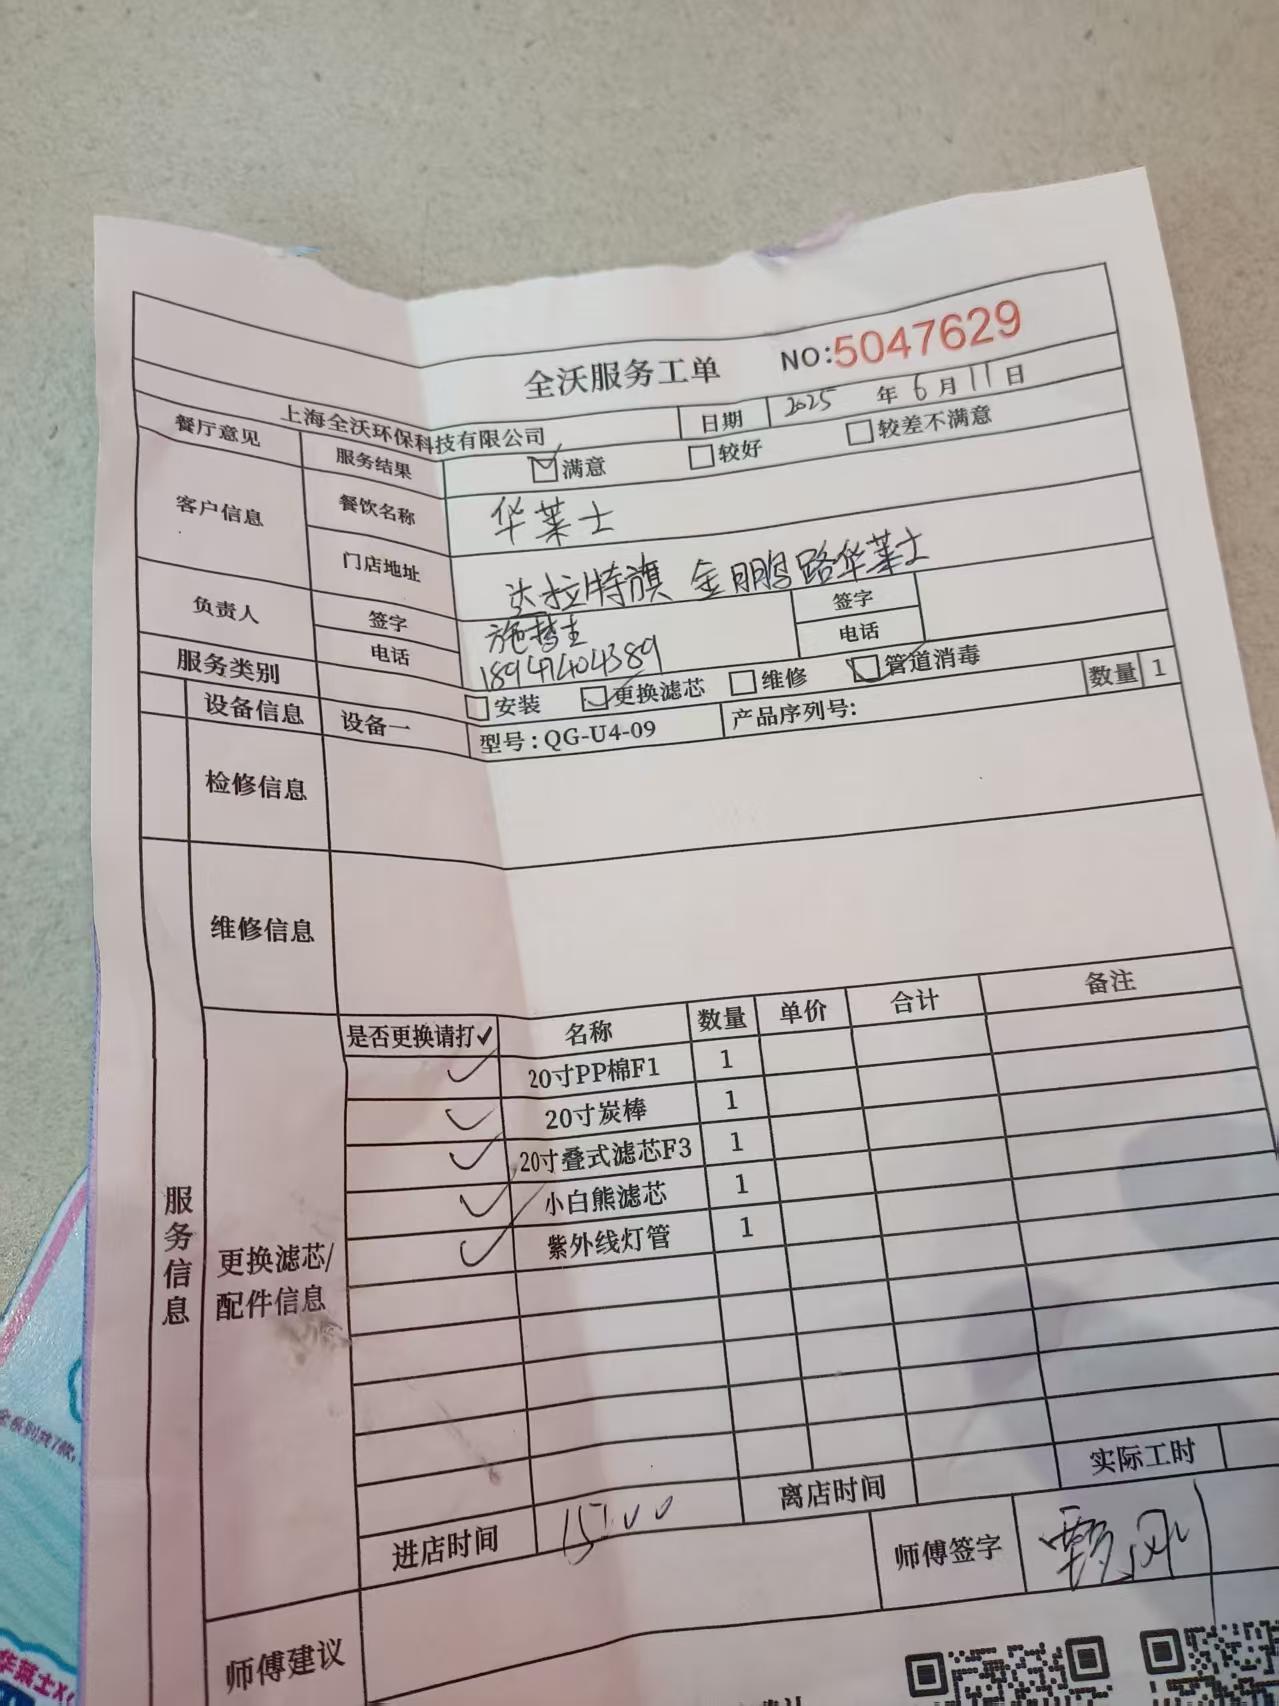 全沃服务工单 NO:5047629
上海全沃环保科技有限公司 日期 2025 年 6 月 11 日
餐厅意见 服务结果 满意 较好 较差不满意
客户信息 餐饮名称 华莱士
门店地址 达拉特旗 金鹏路华莱士
负责人 签字 签字
电话 18947404389 电话
服务类别 安装 更换滤芯 维修 管道消毒
设备信息 设备一 型号:QG-U4-09 产品序列号: 数量 1
检修信息
维修信息
服务信息
更换滤芯/
配件信息
是否更换请打✓ 名称 数量 单价 合计 备注
✓ 20寸PP棉F1 1
✓ 20寸炭棒 1
✓ 20寸叠式滤芯F3 1
✓ 小白熊滤芯 1
✓ 紫外线灯管 1
进店时间 15:00 离店时间 实际工时
师傅签字
师傅建议
全系列共7款,
华莱士X